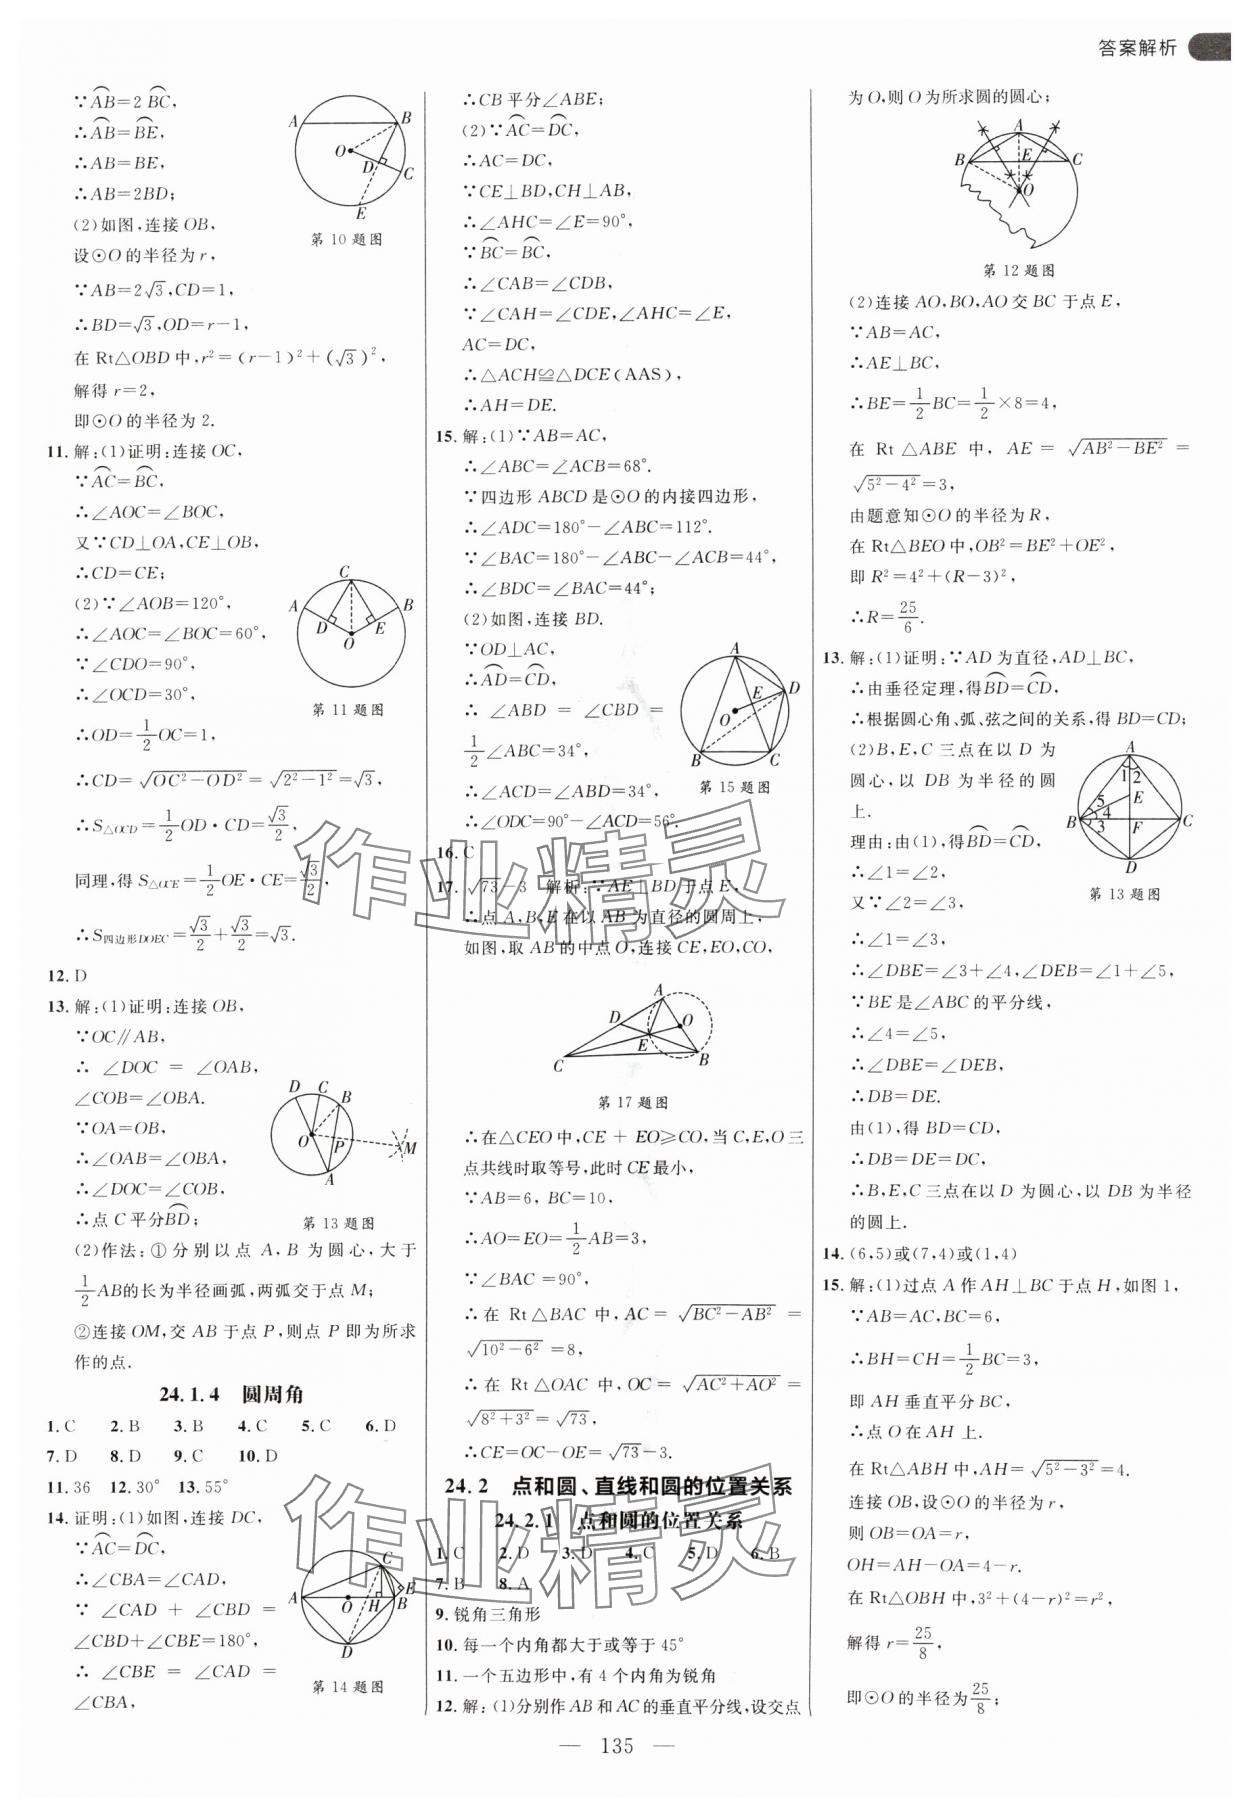 答案解析
∵AB=2 BC,
∴AB=BE,
∴AB=BE,
∴AB=2BD;
(2)如图,连接 OB,
设⊙O的半径为r,
∵AB=2√3,CD=1,
∴BD=√3,OD=r-1,
在 Rt△OBD 中,r²=(r-1)²+(√3)²,
解得 r=2,
即⊙O 的半径为 2.
A B O D C E
第 10 题图
11. 解:(1)证明:连接 OC,
∵AC=BC,
∴∠AOC=∠BOC,
又∵CD⊥OA,CE⊥OB,
∴CD=CE;
(2)∵∠AOB=120°,
∴∠AOC=∠BOC=60°,
∵∠CDO=90°,
∴∠OCD=30°,
∴OD=1/2OC=1,
C A B D E O
第 11 题图
∴CD=√(OC²-OD²)=√(2²-1²)=√3,
∴S△OCD=1/2OD·CD=√3/2,
同理,得 S△OCE=1/2OE·CE=√3/2,
∴S四边形DOEC=√3/2+√3/2=√3.
12. D
13. 解:(1)证明:连接 OB,
∵OC∥AB,
∴ ∠DOC = ∠OAB,
∠COB=∠OBA.
∵OA=OB,
∴∠OAB=∠OBA,
∴∠DOC=∠COB,
∴点 C 平分BD;
D C B O P M A
第 13 题图
(2)作法:①分别以点 A,B 为圆心,大于
1/2AB的长为半径画弧,两弧交于点 M;
②连接 OM,交 AB 于点 P,则点 P 即为所求
作的点.
24.1.4 圆周角
1. C 2. B 3. B 4. C 5. C 6. D
7. D 8. D 9. C 10. D
11. 36 12. 30° 13. 55°
14. 证明:(1)如图,连接 DC,
∵AC=DC,
∴∠CBA=∠CAD,
∵ ∠CAD + ∠CBD =
∠CBD+∠CBE=180°,
∴ ∠CBE = ∠CAD =
∠CBA,
C E A O H B D
第 14 题图
∴CB 平分∠ABE;
(2)∵AC=DC,
∴AC=DC,
∵CE⊥BD,CH⊥AB,
∴∠AHC=∠E=90°,
∵BC=BC,
∴∠CAB=∠CDB,
∵∠CAH=∠CDE,∠AHC=∠E,
AC=DC,
∴△ACH≌△DCE(AAS),
∴AH=DE.
15. 解:(1)∵AB=AC,
∴∠ABC=∠ACB=68°.
∵四边形 ABCD 是⊙O的内接四边形,
∴∠ADC=180°-∠ABC=112°.
∵∠BAC=180°-∠ABC-∠ACB=44°,
∴∠BDC=∠BAC=44°;
(2)如图,连接 BD.
∵OD⊥AC,
∴AD=CD,
∴ ∠ABD = ∠CBD =
1/2∠ABC=34°,
∴∠ACD=∠ABD=34°,
∴∠ODC=90°-∠ACD=56°.
A D E O B C
第 15 题图
16. C
17. √73-3 解析:∵AE⊥BD于点 E,
∴点 A,B,E在以 AB 为直径的圆周上,
如图,取 AB的中点 O,连接 CE,EO,CO,
A D O E B C
第 17 题图
∴在△CEO中,CE + EO≥CO,当 C,E,O三
点共线时取等号,此时 CE最小,
∵AB=6, BC=10,
∴AO=EO=1/2AB=3,
∵∠BAC =90°,
∴在 Rt△BAC 中,AC = √(BC²-AB²) =
√(10²-6²)=8,
∴在 Rt△OAC 中,OC = √(AC²+AO²) =
√(8²+3²)=√73,
∴CE=OC-OE=√73-3.
24.2 点和圆、直线和圆的位置关系
24.2.1 点和圆的位置关系
1. C 2. D 3. D 4. C 5. D 6. B
7. B 8. A
9. 锐角三角形
10. 每一个内角都大于或等于 45°
11. 一个五边形中,有 4 个内角为锐角
12. 解:(1)分别作 AB 和 AC的垂直平分线,设交点
为O,则 O为所求圆的圆心;
A B E C O
第 12 题图
(2)连接 AO,BO,AO 交 BC 于点 E,
∵AB=AC,
∴AE⊥BC,
∴BE=1/2BC=1/2×8=4,
在 Rt△ABE 中,AE = √(AB²-BE²) =
√(5²-4²)=3,
由题意知⊙O的半径为 R,
在 Rt△BEO 中,OB²=BE²+OE²,
即 R²=4²+(R-3)²,
∴R=25/6.
13. 解:(1)证明:∵AD 为直径,AD⊥BC,
∴由垂径定理,得BD=CD,
∴根据圆心角、弧、弦之间的关系,得 BD=CD;
(2)B,E,C 三点在以 D 为
圆心,以 DB 为半径的圆
上.
理由:由(1),得BD=CD,
∴∠1=∠2,
又∵∠2=∠3,
∴∠1=∠3,
A 1 2 E 5 4 3 B F C D
第 13 题图
∴∠DBE=∠3+∠4,∠DEB=∠1+∠5,
∵BE是∠ABC的平分线,
∴∠4=∠5,
∴∠DBE=∠DEB,
∴DB=DE.
由(1),得 BD=CD,
∴DB=DE=DC,
∴B,E,C三点在以 D 为圆心,以 DB 为半径
的圆上.
14. (6,5)或(7,4)或(1,4)
15. 解:(1)过点 A 作 AH⊥BC于点 H,如图 1,
∵AB=AC,BC=6,
∴BH=CH=1/2BC=3,
即 AH 垂直平分 BC,
∴点 O在 AH 上.
在 Rt△ABH 中,AH=√(5²-3²)=4.
连接 OB,设⊙O的半径为 r,
则 OB=OA=r,
OH=AH-OA=4-r,
在 Rt△OBH 中,3²+(4-r)²=r²,
解得 r=25/8,
即⊙O 的半径为25/8;
作业精灵
作业精灵
— 135 —